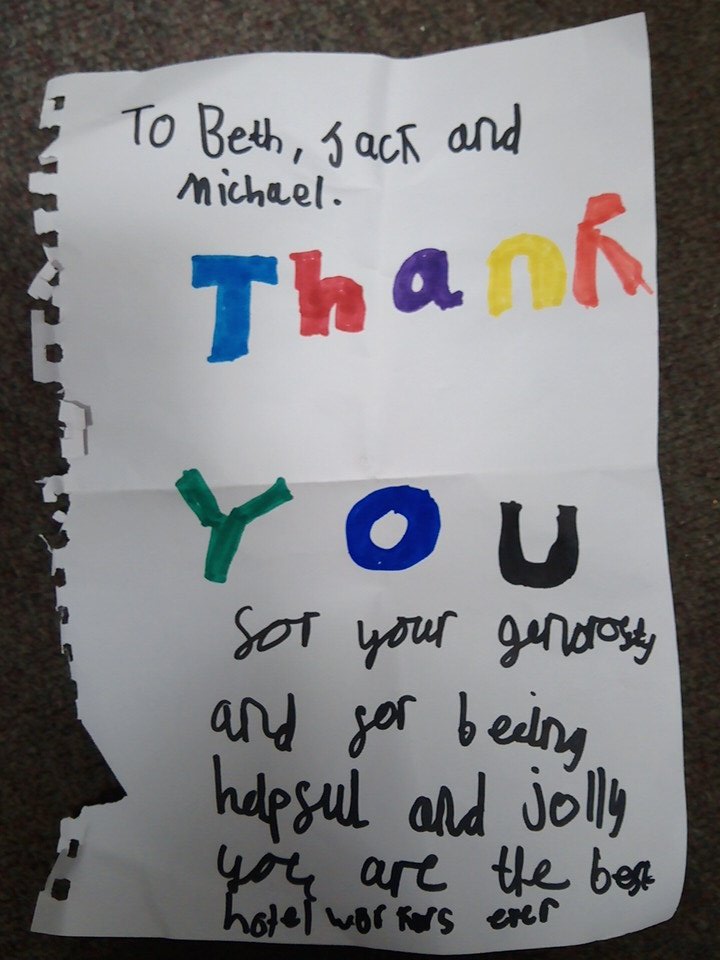 To Beth, Jack and
Michael.
Thank
You
for your generosty
and for being
helpful and jolly
you are the best
hotel workers ever